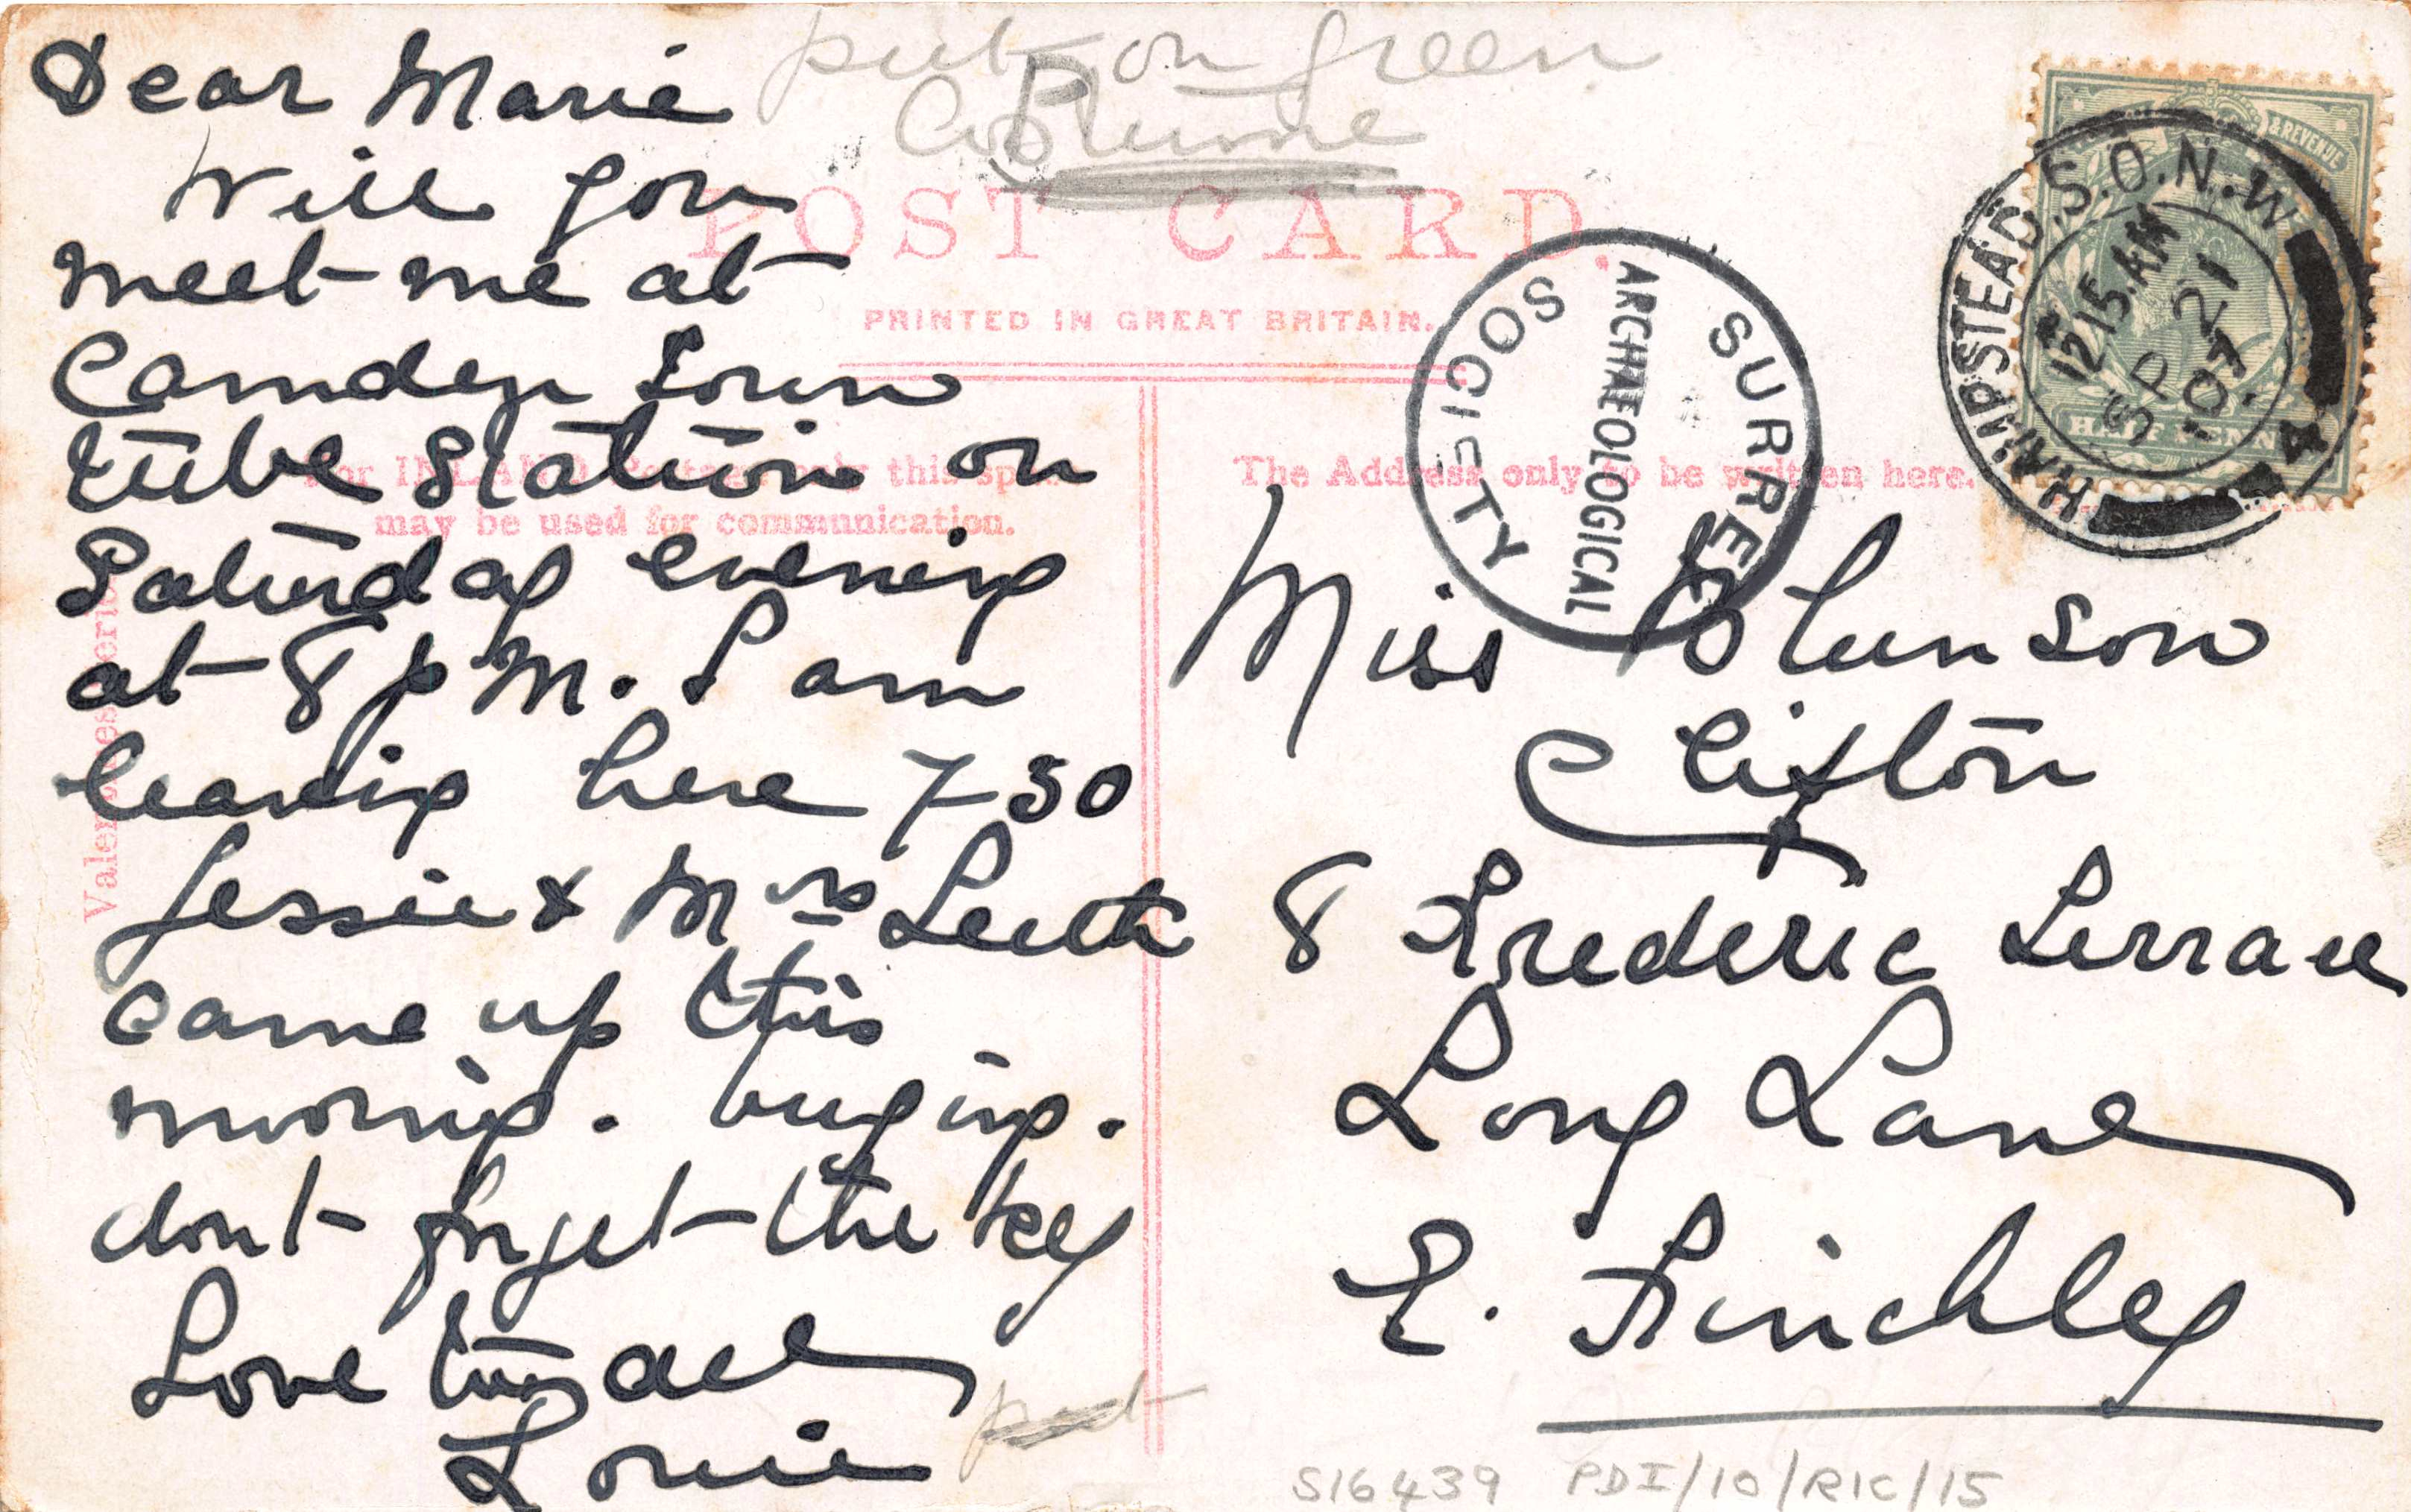 put on green
Costume
Dear Marie
Will you
meet me at
Camden Town
tube Station on
Saturday evening
at 8 p M. I am
leaving here 7-30
Jessie & Mrs
came up this
morning.
dont forget the key
Love all
Louie
put
POST CARD.
PRINTED IN GREAT BRITAIN.
For INLAND Postage only this space
may be used for communication.
The Address only to be written here.
Valentines Series
SURREY
ARCHAEOLOGICAL
SOCIETY
& REVENUE
HALFPENNY
HAMPSTEAD.S.O.N.W
12 15.AM
SP 21
07
4
Miss Johnson
Clifton
8 Frederic Terrace
Long Lane
E. Finchley
S16439 PDI/10/RIC/15